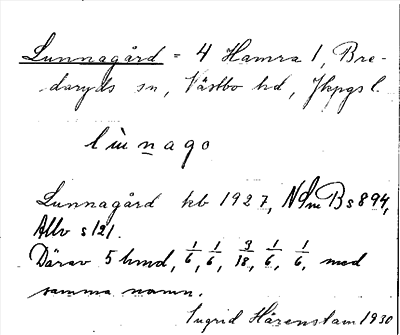 Lunnagård = 4 Hamra 1, Bre-
daryds sn, Västbo hd, Jkpgs l.
lùnago
Lunnagård kb 1927, NSmB s 894,
Allv s 121.
Därav 5 hmd, 1/6, 1/6, 3/18, 1/6, 1/6, med
samma namn.
Ingrid Härenstam 1930